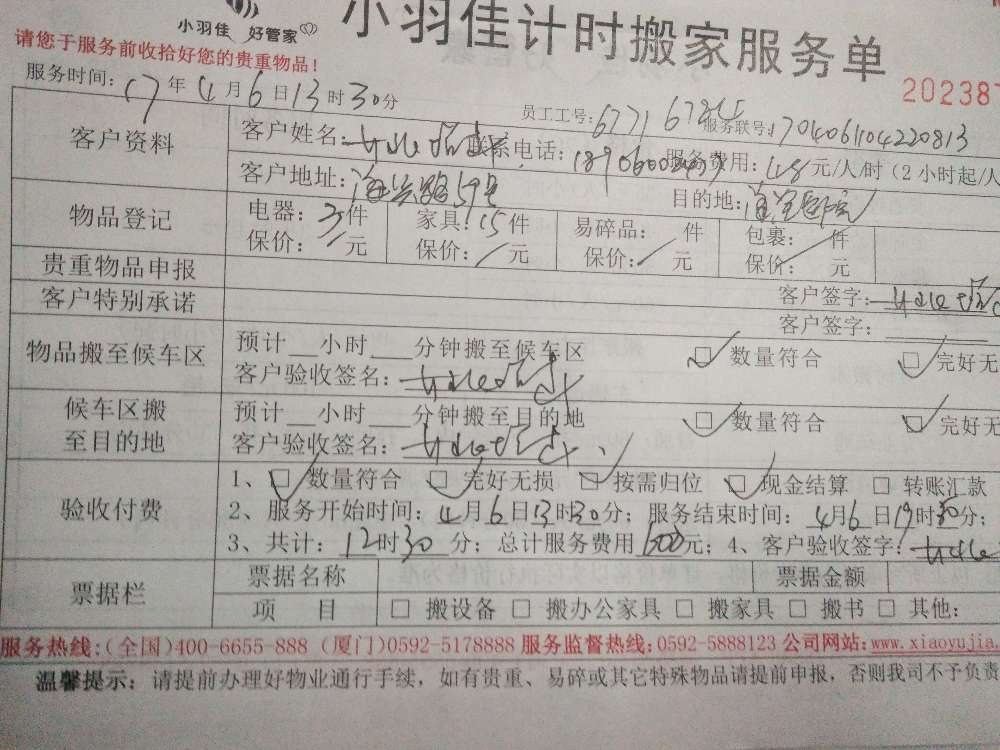 小羽佳 好管家
小羽佳计时搬家服务单
请您于服务前收拾好您的贵重物品！
202387
服务时间：17年4月6日13时30分
员工工号：6771 服务联号：1704061104220813
客户资料
客户姓名： 联系电话： 服务费用：48元/人/时（2小时起/人
客户地址：海兴路59号 目的地：
物品登记
电器：3件 家具：15件 易碎品： 件 包裹： 件
保价：/元 保价：/元 保价：/元 保价： 元
贵重物品申报
客户签字：
客户特别承诺
客户签字：
物品搬至候车区
预计__小时___分钟搬至候车区 ☑数量符合 ☑完好无
客户验收签名：
候车区搬至目的地
预计__小时___分钟搬至目的地 ☑数量符合 ☑完好无
客户验收签名：
验收付费
1、☑数量符合 ☑完好无损 ☑按需归位 ☑现金结算 □转账汇款
2、服务开始时间：4月6日13时30分；服务结束时间：4月6日19时30分；
3、共计：12时30分；总计服务费用600元；4、客户验收签字：
票据栏
票据名称 票据金额
项 目 □搬设备 □搬办公家具 □搬家具 □搬书 □其他：
服务热线：（全国）400-6655-888（厦门）0592-5178888 服务监督热线：0592-5888123 公司网站：www.xiaoyujia.
温馨提示：请提前办理好物业通行手续，如有贵重、易碎或其它特殊物品请提前申报，否则我司不予负责